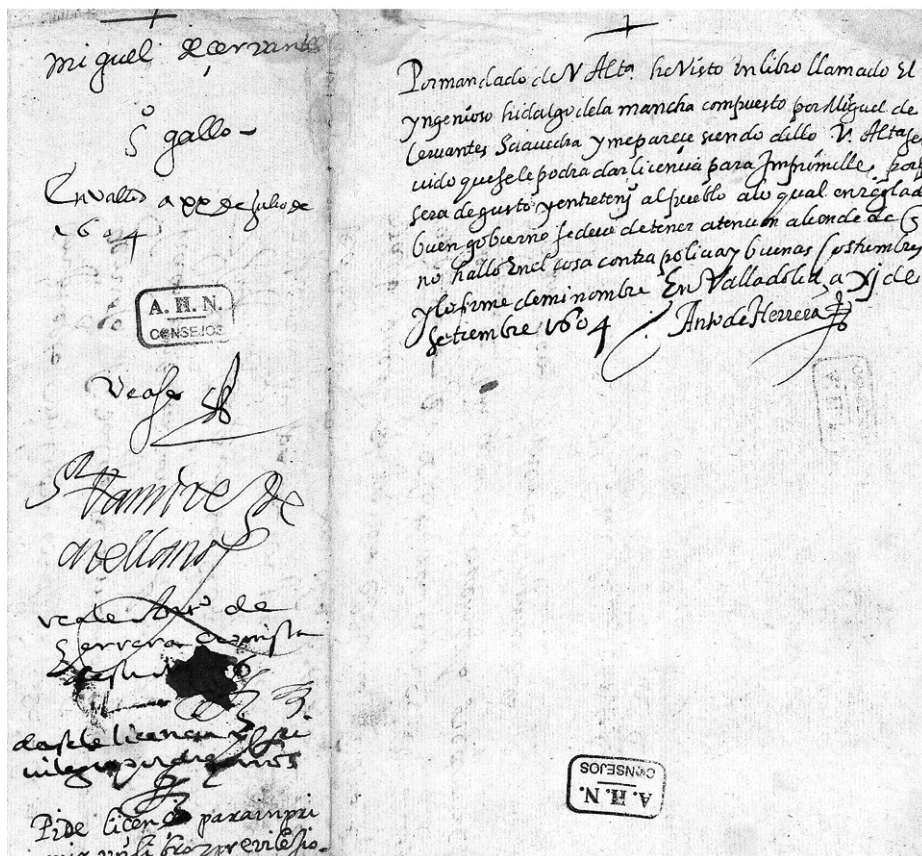 Miguel de cervantes
So gallo
En Vallid a xx de Julio de
1604
A. H. N.
CONSEJOS
Vease
Sr Ramirez de
arellano
veale Anto de
Herrera coronista
de su
dasele licencia y pri
vilegio por diez años
Pide licencia para inpri
mir un libro y previlesio
Por mandado de V Alta. he Visto Un libro llamado El
yngenioso hidalgo dela mancha compuesto por Miguel de
Cervantes Saavedra y me pareçe siendo dello V. Alta ser
uido que se le podra dar licencia para Imprimille, porq
sera de gusto y entretenimio al pueblo alo qual en regla de
buen gobierno se deue de tener atencion aliende de q
no hallo Enel cosa contra policia y buenas costumbres
y lo firme de mi nombre En Valladolid a xj de
Setiembre 1604 Anto de Herrera
A. H. N.
CONSEJOS